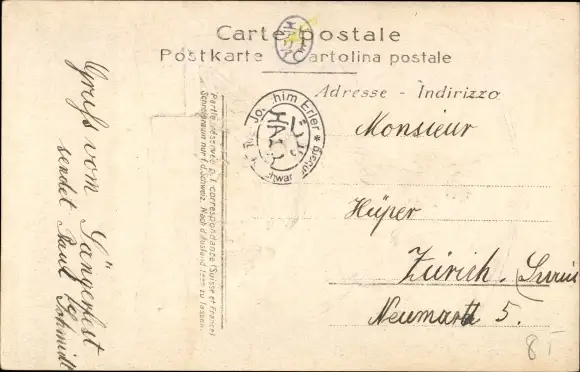 Carte postale
Postkarte Cartolina postale
Adresse - Indirizzo
Monsieur
Hüper
Zürich.
Neumarkt 5.
Gruß vom Sängerfest
sendet Paul Schmidt
Partie réservée p. l. correspondance (Suisse et France)
Schreibraum nur f. d. Schweiz. Nach d. Ausland leer zu lassen.
Joachim Erler *
8